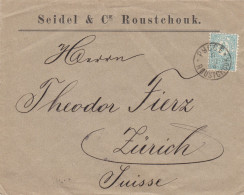 Seidel & Cº Roustchouk.
Herrn
Theodor Fierz
Zürich
Suisse